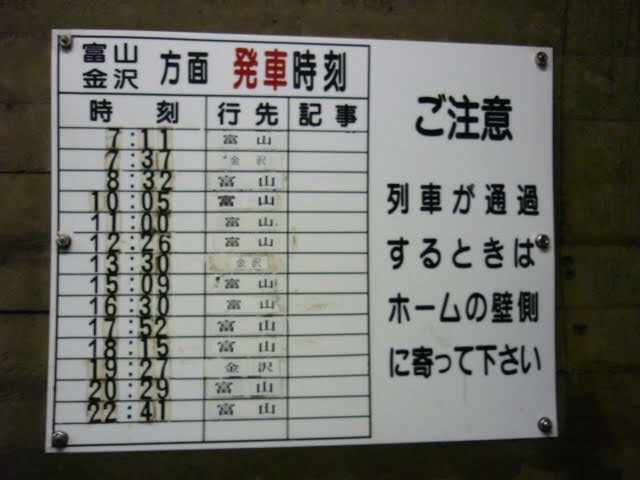 富山
金沢 方面 発車時刻
時刻 行先 記事
7:11 富山
7:37 金沢
8:32 富山
10:05 富山
11:00 富山
12:26 富山
13:30 金沢
15:09 富山
16:30 富山
17:52 富山
18:15 富山
19:27 金沢
20:29 富山
22:41 富山
ご注意
列車が通過
するときは
ホームの壁側
に寄って下さい